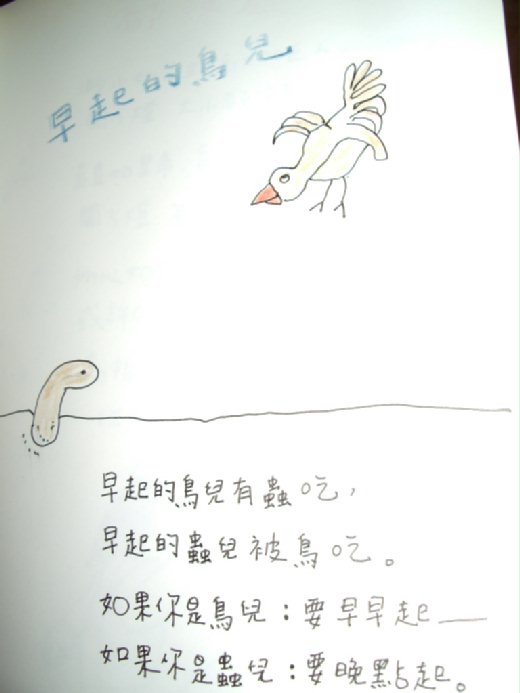 早起的鳥兒
早起的鳥兒有蟲吃，
早起的蟲兒被鳥吃。
如果你是鳥兒：要早早起——
如果你是蟲兒：要晚點起。